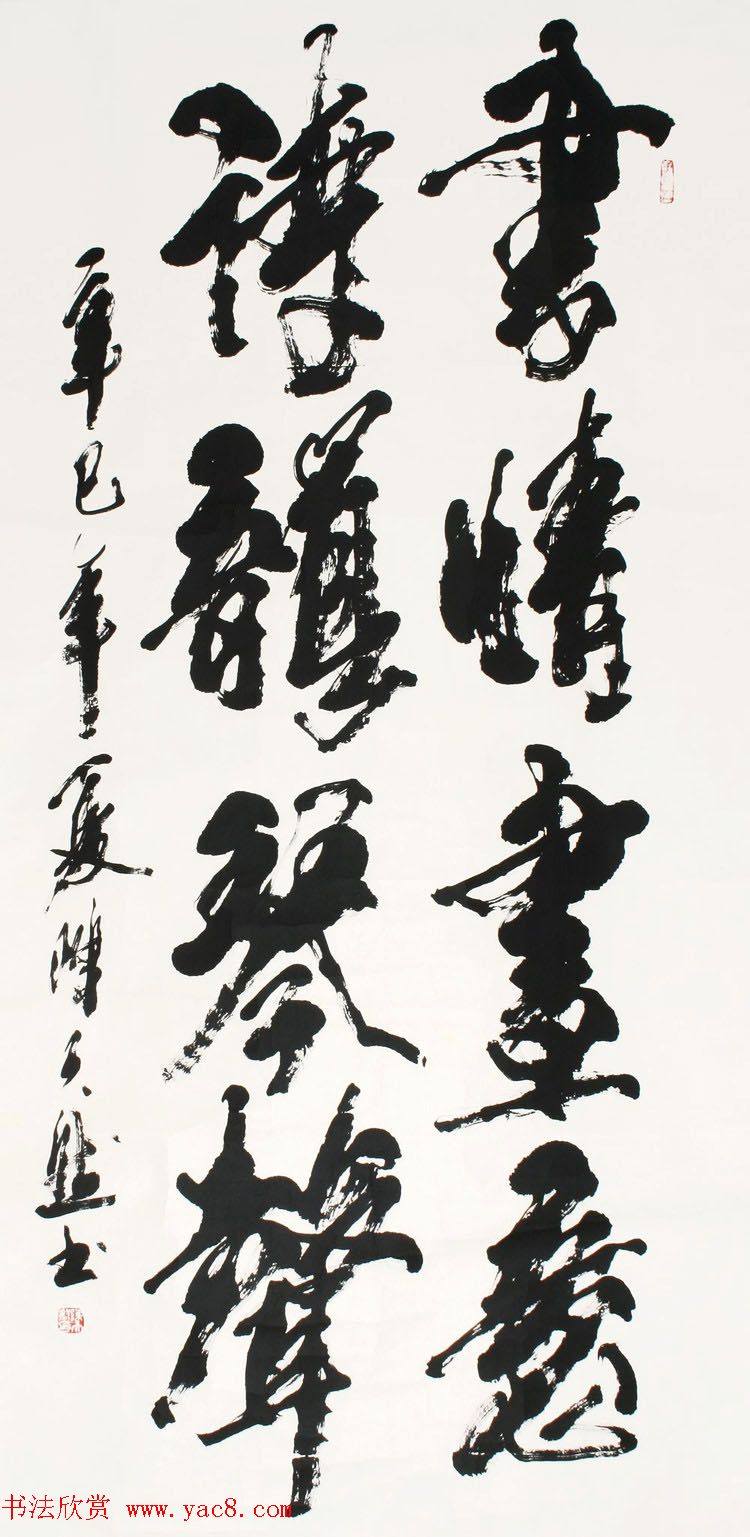 書情畫意
頀琴聲
辛巳年夏陳天然书
书法欣赏 www.yac8.com